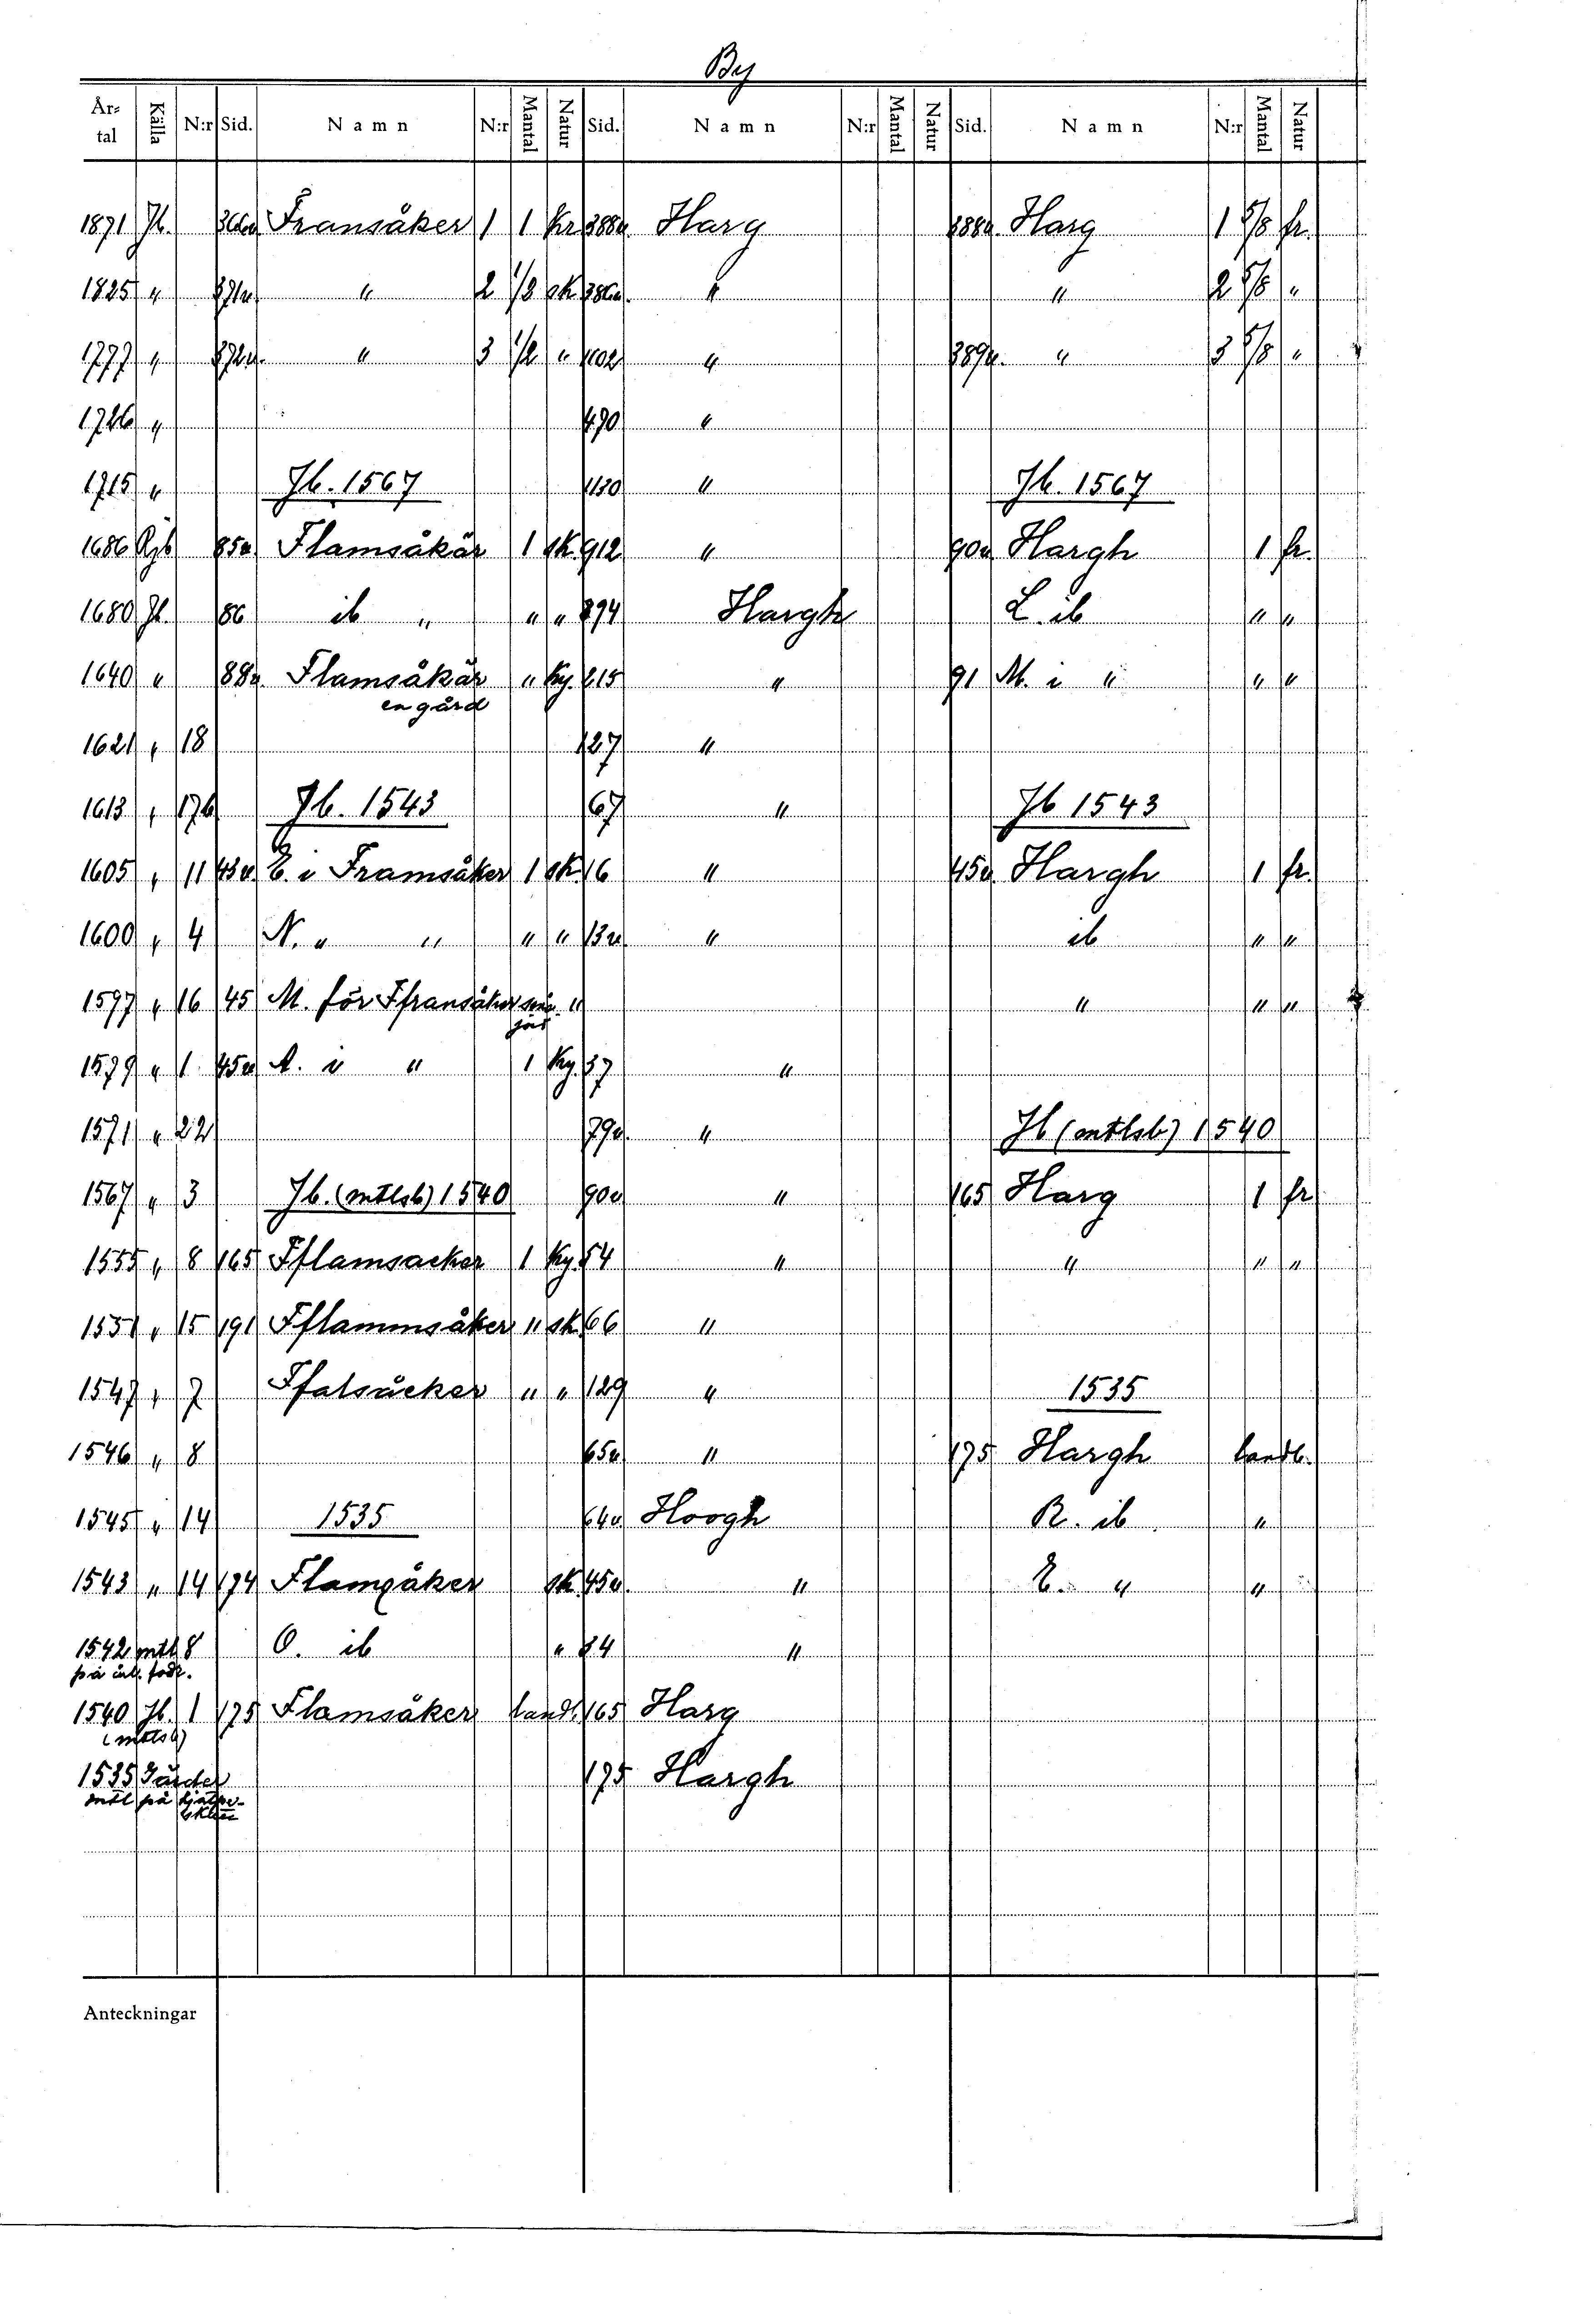 By
År-tal Källa N:r Sid. Namn N:r Mantal Natur Sid. Namn N:r Mantal Natur Sid. Namn N:r Mantal Natur
1871 Jb. 366u Fransåker 1 1 Kr 388u. Harg 388u. Harg 1 5/8 fr.
1825 " 371u. " 2 1/2 sk 386u. " " 2 5/8 "
1777 " 372u. " 3 1/2 " 1102 " 389u. " 3 5/8 "
1726 " 490 "
1715 " Jb. 1567 1130 " Jb. 1567
1686 Rjb 85u. Flamsåkär 1 sk. 912 " 90u Hargh 1 fr.
1680 Jb. 86 ib " " " 894 Hargh L. ib " "
1640 " 88u. Flamsåkär " Ky. 615 " 91 M. i " " "
en gård
1621 " 18 127 "
1613 " 17b Jb. 1543 67 " Jb 1543
1605 " 11 43u. E. i Framsåker 1 sk. 16 " 45u. Hargh 1 fr.
1600 " 4 N. " " " " 13u. " ib " "
1597 " 16 45 M. för Ffransåker " " " "
1579 " 1 45u A. i " 1 Ky. 37 "
1571 " 22 79u. " Jb (mtlsb) 1540
1567 " 3 Jb. (mtlsb) 1540 90u " 165 Harg 1 fr
1555 " 8 165 Fflamsacker 1 Ky. 54 " " " "
1551 " 15 191 Fflammsåker " sk. 66 "
1547 " 7 Ffalsåcker " " 129 " 1535
1546 " 8 65u " 175 Hargh landb.
1545 " 14 1535 64u. Hoogh R. ib. "
1543 " 14 174 Flamsåker sk. 45u. " E. " "
1542 mtl 8 O. ib " 34 "
på
1540 Jb. 1 175 Flamsåker landb. 165 Harg
(mtlsb)
1535 Gärder 175 Hargh
mtl på hjälpe-
Anteckningar